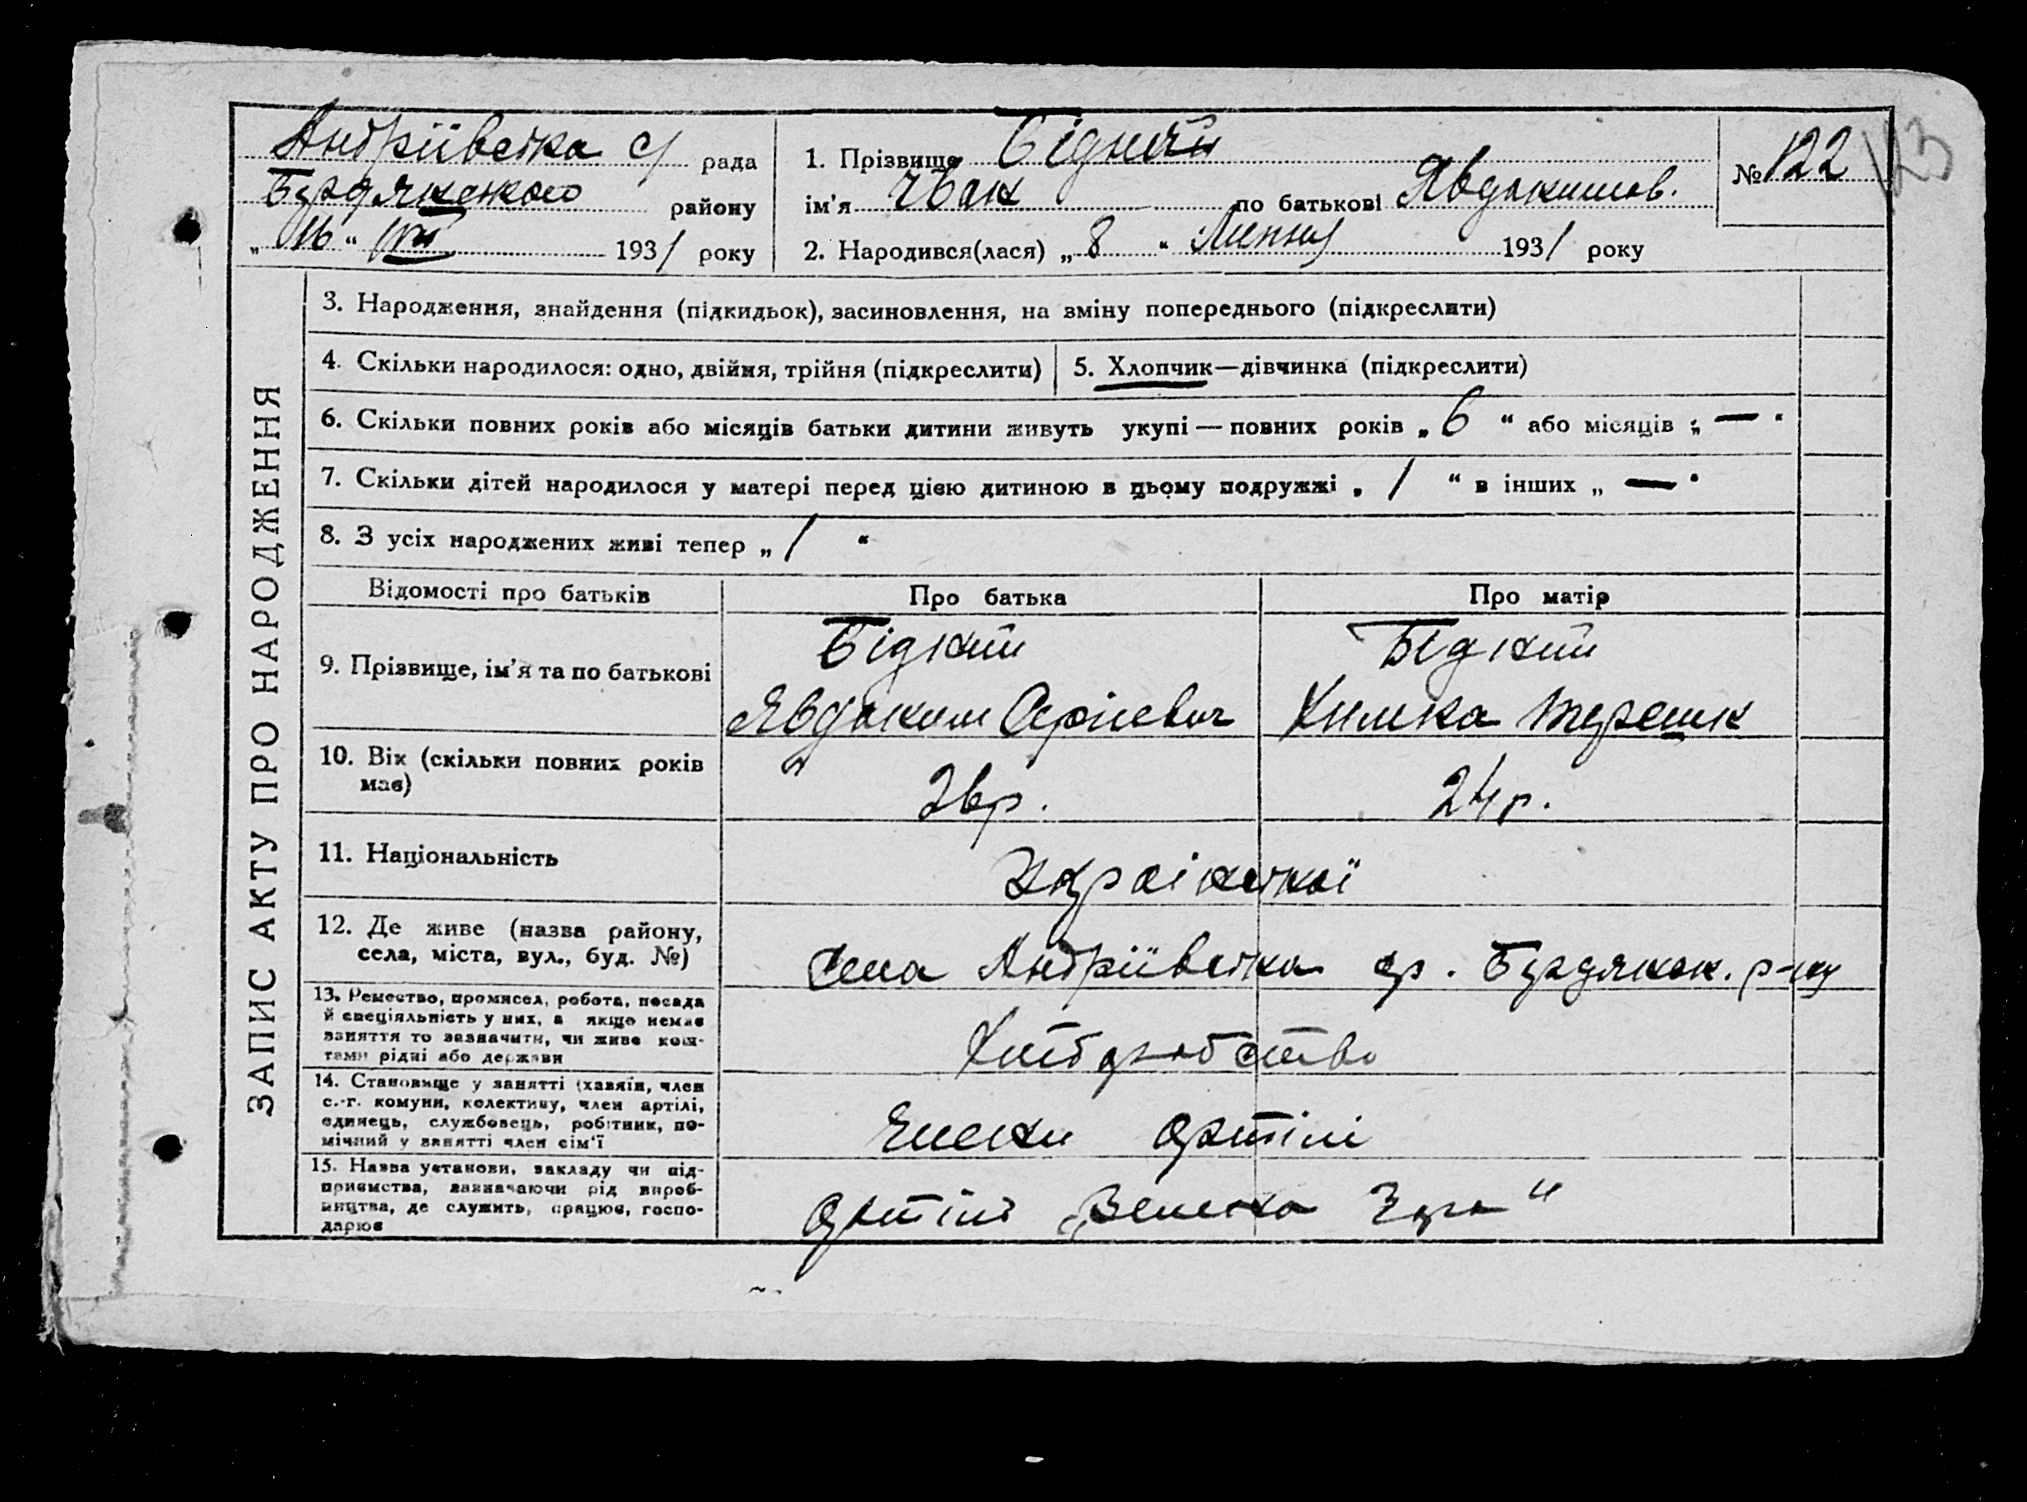 Андріївська с/ рада
Бердянського району
„16“ VIII 1931 року
1. Прізвище Бідний
ім'я Іван по батькові Явдокимов.
2. Народився(лася) „8“ Липня 1931 року
№ 122
123
ЗАПИС АКТУ ПРО НАРОДЖЕННЯ
3. Народження, знайдення (підкидьок), засиновлення, на зміну попереднього (підкреслити)
4. Скільки народилося: одно, двійня, трійня (підкреслити)
5. Хлопчик—дівчинка (підкреслити)
6. Скільки повних років або місяців батьки дитини живуть укупі — повних років „6“ або місяців „—“
7. Скільки дітей народилося у матері перед цією дитиною в цьому подружжі „1“ в інших „—“
8. З усіх народжених живі тепер „1“
Відомості про батьків
Про батька
Про матір
9. Прізвище, ім'я та по батькові
Бідний
Явдоким Сергієвич
Бідний
Химка
10. Вік (скільки повних років
має)
26р.
24р.
11. Національність
Української
12. Де живе (назва району,
села, міста, вул., буд. №)
Села Андріївська Бердянск. р-ну
13. Ремество, промисел, робота, посада
й спеціяльність у них, а якщо немає
заняття то зазначити, чи живе кош-
тами рідні або держави
Хліборобство
14. Становище у занятті (хазяїн, член
с.-г. комуни, колективу, член артілі,
одинець, службовець, робітник, по-
мічний у занятті член сім'ї
Члени артілі
15. Назва установи, закладу чи під-
приємства, зазначаючи рід вироб-
ництва, де служить, працює, госпо-
дарює
Артіль